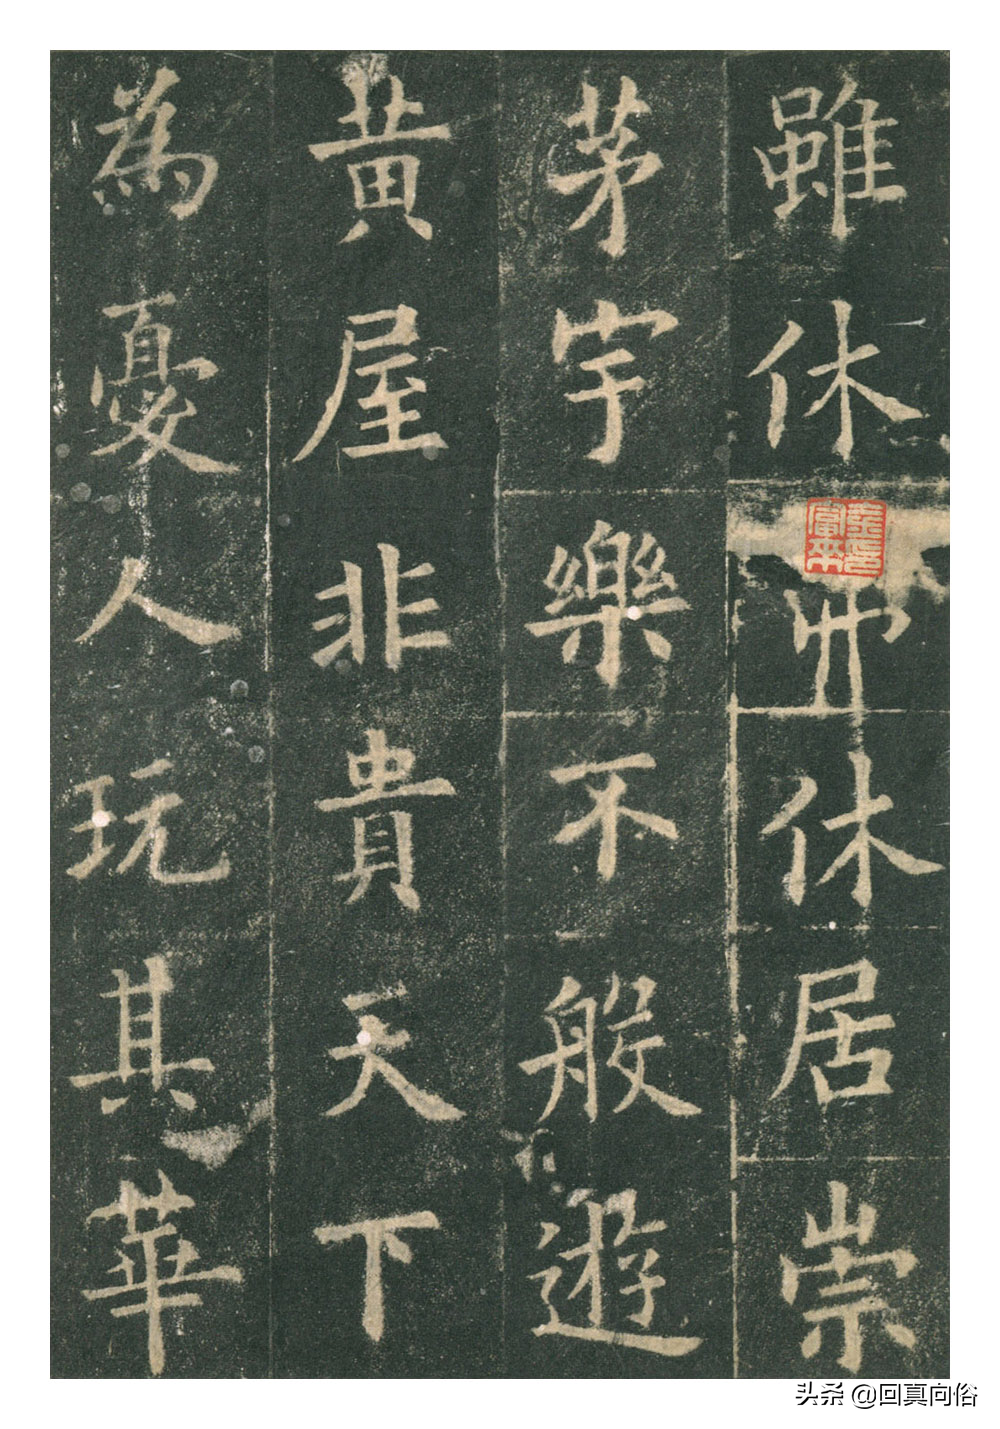 雖休弗休居崇
茅宇樂不般遊
黄屋非貴天下
為憂人玩其華
头条 @回真向俗